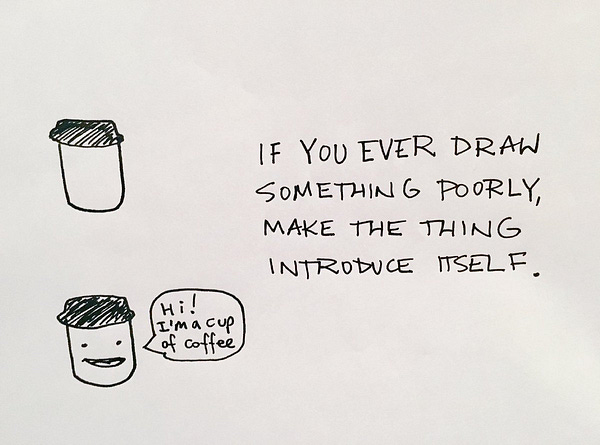 IF YOU EVER DRAW
SOMETHING POORLY,
MAKE THE THING
INTRODUCE ITSELF.
Hi!
I'm a cup
of coffee